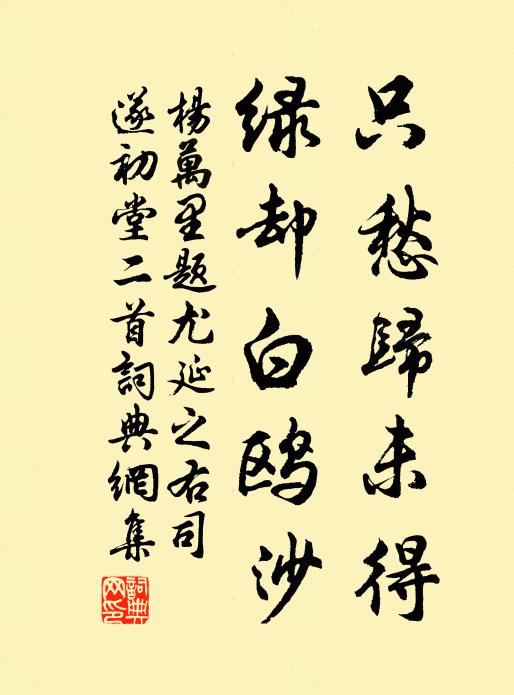 只愁歸未得
緑却白鸥沙
楊萬里題尤延之右司
遂初堂二首詞典網集
詞典网印